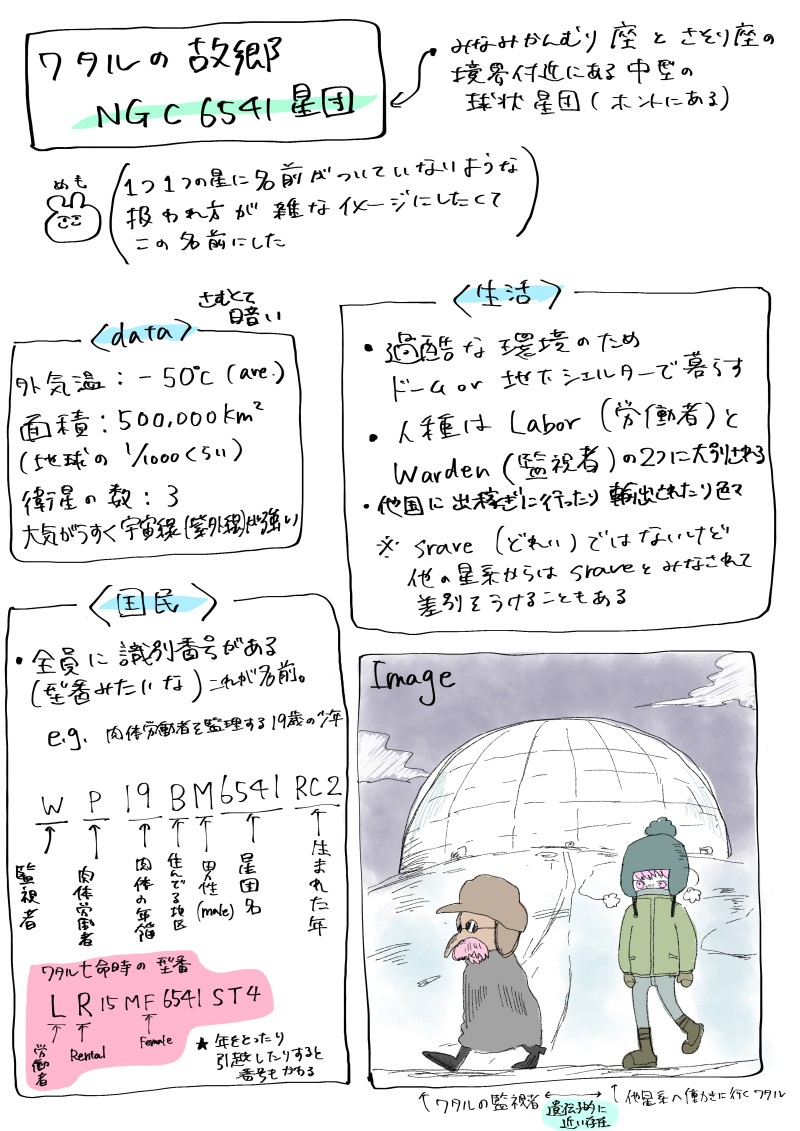 ワタルの故郷
NGC 6541 星団
みなみかんむり座とさそり座の
境界付近にある中型の
球状星団(ホントにある)
めも
1つ1つの星に名前がついていないような
扱われ方が雑なイメージにしたくて
この名前にした
<data>
さむくて
暗い
外気温:-50℃(ave.)
面積:500,000km²
(地球の1/1000くらい)
衛星の数:3
大気がうすく宇宙線(紫外線)が強い
<生活>
・過酷な環境のため
ドームor地下シェルターで暮らす
・人種はLabor(労働者)と
Warden(監視者)の2つに大別される
・他国に出稼ぎに行ったり輸出されたり色々
※srave(どれい)ではないけど
他の星系からはsraveとみなされて
差別をうけることもある
<国民>
・全員に識別番号がある
(型番みたいな)これが名前。
e.g. 肉体労働者を監理する19歳の少年
W P 19 B M 6541 RC2
監視者
肉体労働者
肉体の年齢
住んでる地区
男性
(male)
星団名
生まれた年
ワタル亡命時の型番
L R 15 M F 6541 ST4
労働者
Rental
Female
★年をとったり
引越したりすると
番号もかわる
Image
↑ワタルの監視者
遺伝子的に
近い存在
↑他星系へ働きに行くワタル